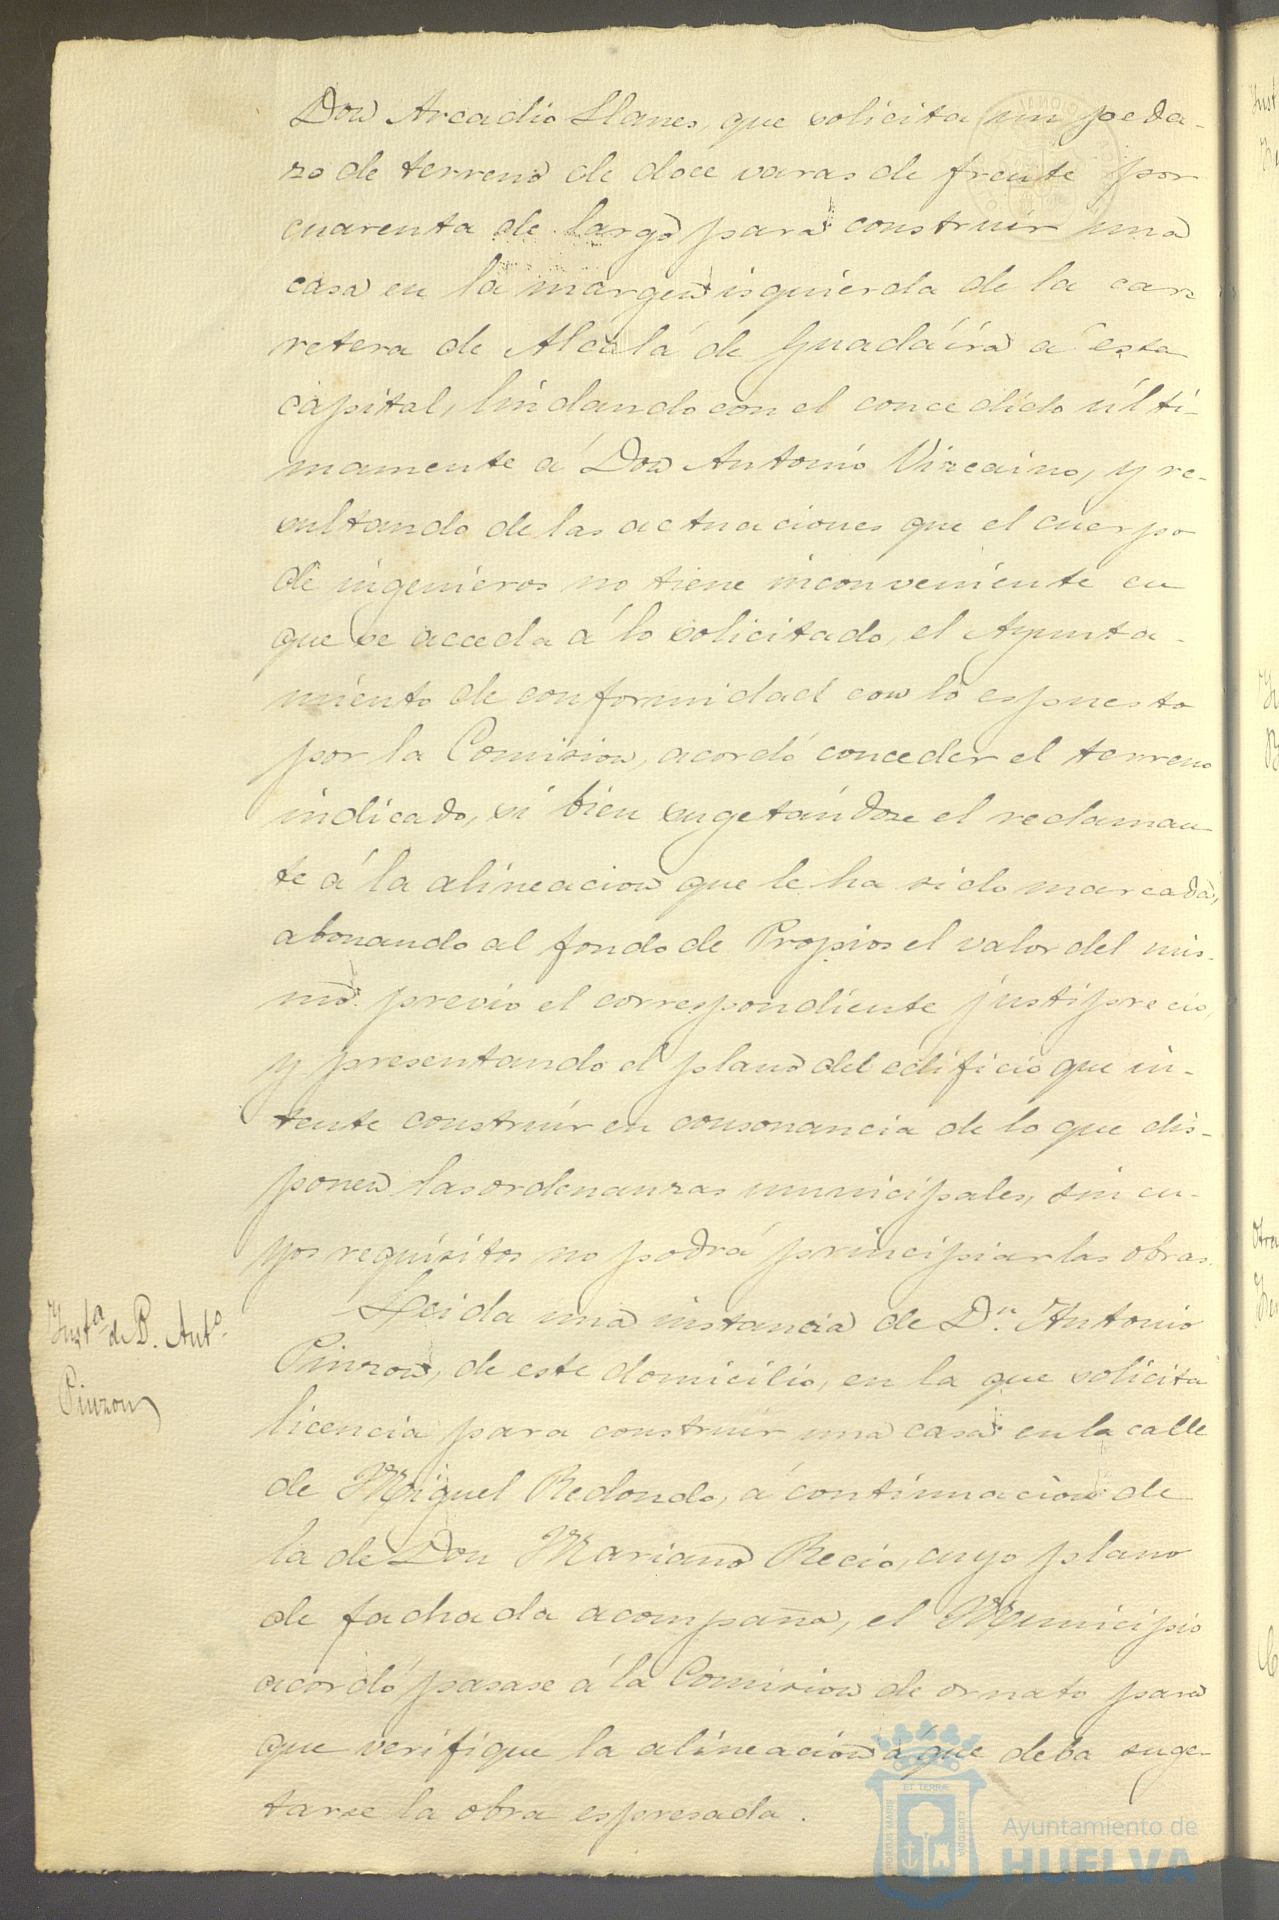 Don Arcadio Llanes, que solicita un peda-
zo de terreno de doce varas de frente por
cuarenta de largo para construir una
casa en la margen isquierda de la car-
retera de Alcalá de Guadáira á esta
capital, lindando con el concedido últi-
mamente á Don Antonio Vizcaino, y re-
sultando de las actuaciones que el cuerpo
de ingenieros no tiene inconveniente en
que se acceda á lo solicitado, el Ayunta-
miento de conformidad con lo espuesto
por la Comision, acordó conceder el terreno
indicado, si bien sugetándose el reclaman-
te á la alineacion que le ha sido marcada,
abonando al fondo de Propios el valor del mis-
mo previo el correspondiente justiprecio,
y presentando el plano del edificio que in-
tente construir en consonancia de lo que dis-
ponen las ordenanzas municipales, sin cu-
yos requisitos no podrá principiar las obras.
Inst.ª de D. Ant.º
Pinzon
Leida una instancia de D.n Antonio
Pinzon, de este domicilio, en la que solicita
licencia para construir una casa en la calle
de Miguel Redondo, á continuacion de
la de Don Mariano Recio, cuyo plano
de fachada acompaña, el Municipio
acordó pasase á la Comision de ornato para
que verifique la alineacion á que deba suge-
tarse la obra espresada.
ET TERRÆ
PORTUS MARIS
CUSTODIA
Ayuntamiento de
HUELVA